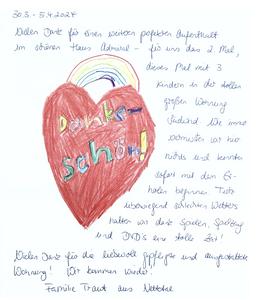 30.3. - 5.4.2024
Vielen Dank für einen weiteren perfekten Aufenthalt
im schönen Haus Admiral - für uns das 2. Mal,
dieses Mal mit 3
Kindern in der tollen
großen Wohnung
Danke-
schön!
Wie immer
vermissten wir hier
nichts und konnten
sofort mit dem Er-
holen beginnen. Trotz
überwiegend schlechten Wetters
hatten wir dank Spielen, Spielzeug
und DVD's eine tolle Zeit!
Vielen Dank für die liebevoll gepflegte und ausgestattete
Wohnung! Wir kommen wieder.
Familie aus Nettetal